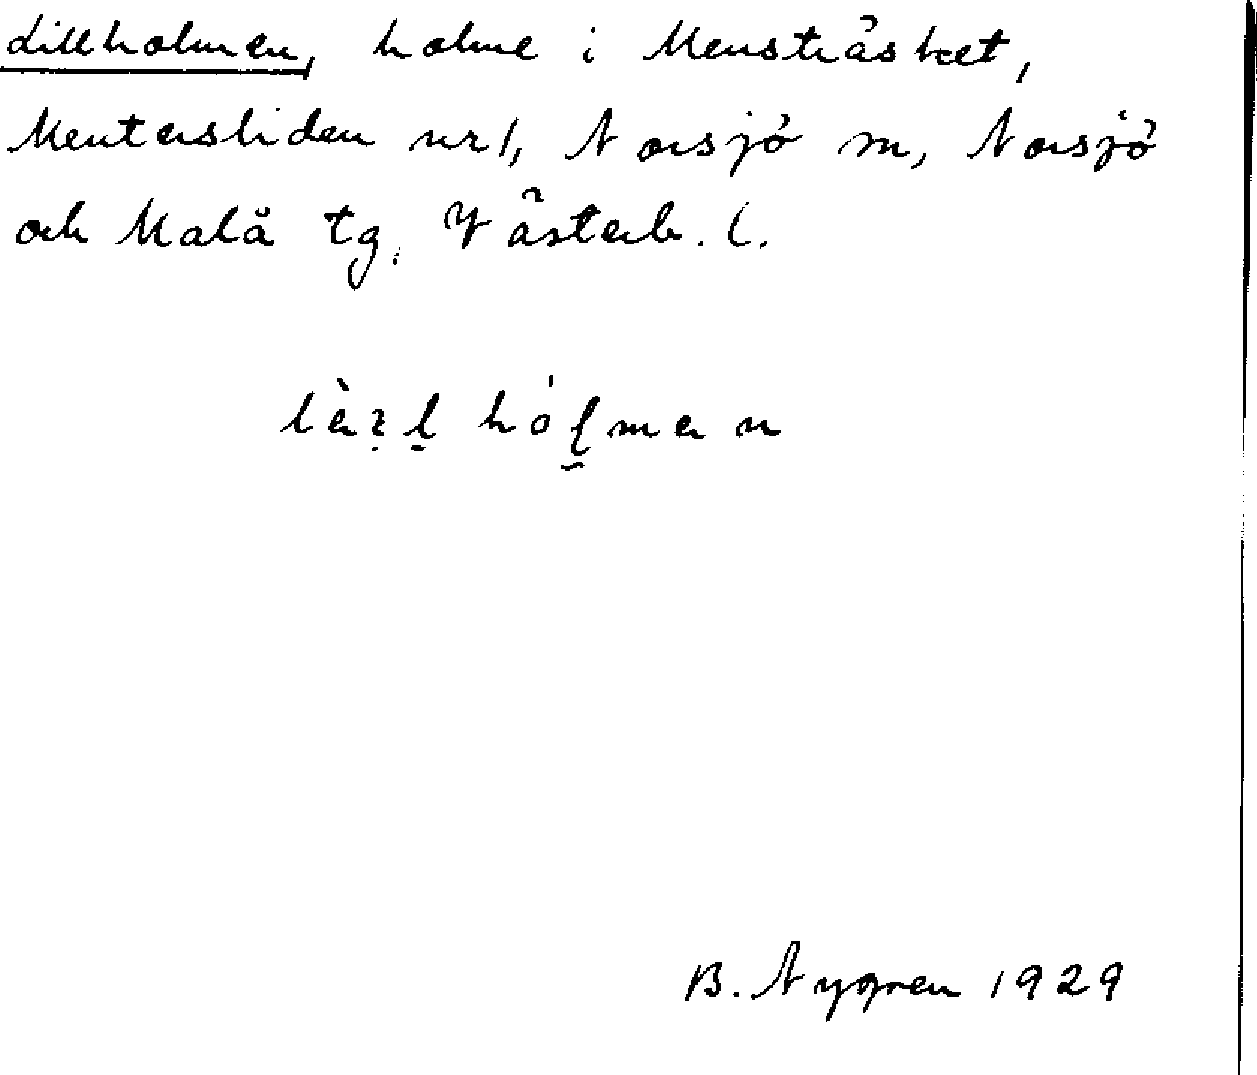 Lillholmen, holme i Mensträsket,
Mentersliden nr 1, Norsjö sn, Norsjö
och Malå tg, Västerb. l.
hólmen
B. Nygren 1929